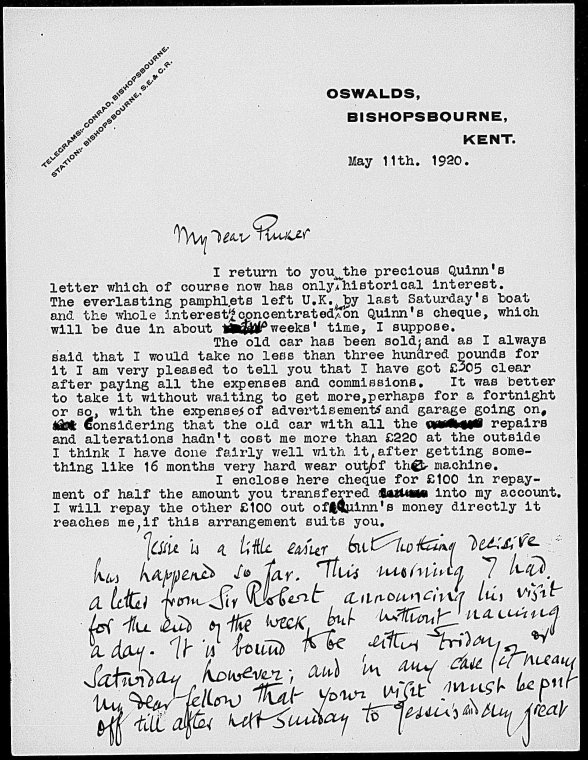 TELEGRAMS:- CONRAD, BISHOPSBOURNE.
STATION:- BISHOPSBOURNE, S.E.& C.R.
OSWALDS,
BISHOPSBOURNE,
KENT.
May 11th. 1920.
My Dear Pinker
I return to you the precious Quinn's
letter which of course now has only historical interest.
The everlasting pamphlets left U.K. by last Saturday's boat
and the whole interest is concentrated on Quinn's cheque, which
will be due in about weeks' time, I suppose.
The old car has been sold; and as I always
said that I would take no less than three hundred pounds for
it I am very pleased to tell you that I have got £305 clear
after paying all the expenses and commissions. It was better
to take it without waiting to get more, perhaps for a fortnight
or so, with the expenses of advertisements and garage going on.
Considering that the old car with all the repairs
and alterations hadn't cost me more than £220 at the outside
I think I have done fairly well with it, after getting some-
thing like 16 months very hard wear out of the machine.
I enclose here cheque for £100 in repay-
ment of half the amount you transferred into my account.
I will repay the other £100 out of Quinn's money directly it
reaches me, if this arrangement suits you.
Jessie is a little easier but nothing decisive
has happened so far. This morning I had
a letter from Sir Robert announcing his visit
for the end of the week, but without naming
a day. It is bound to be either Friday or
Saturday however; and in any case it means
my dear fellow that your visit must be put
off till after next Sunday to Jessie's and my great